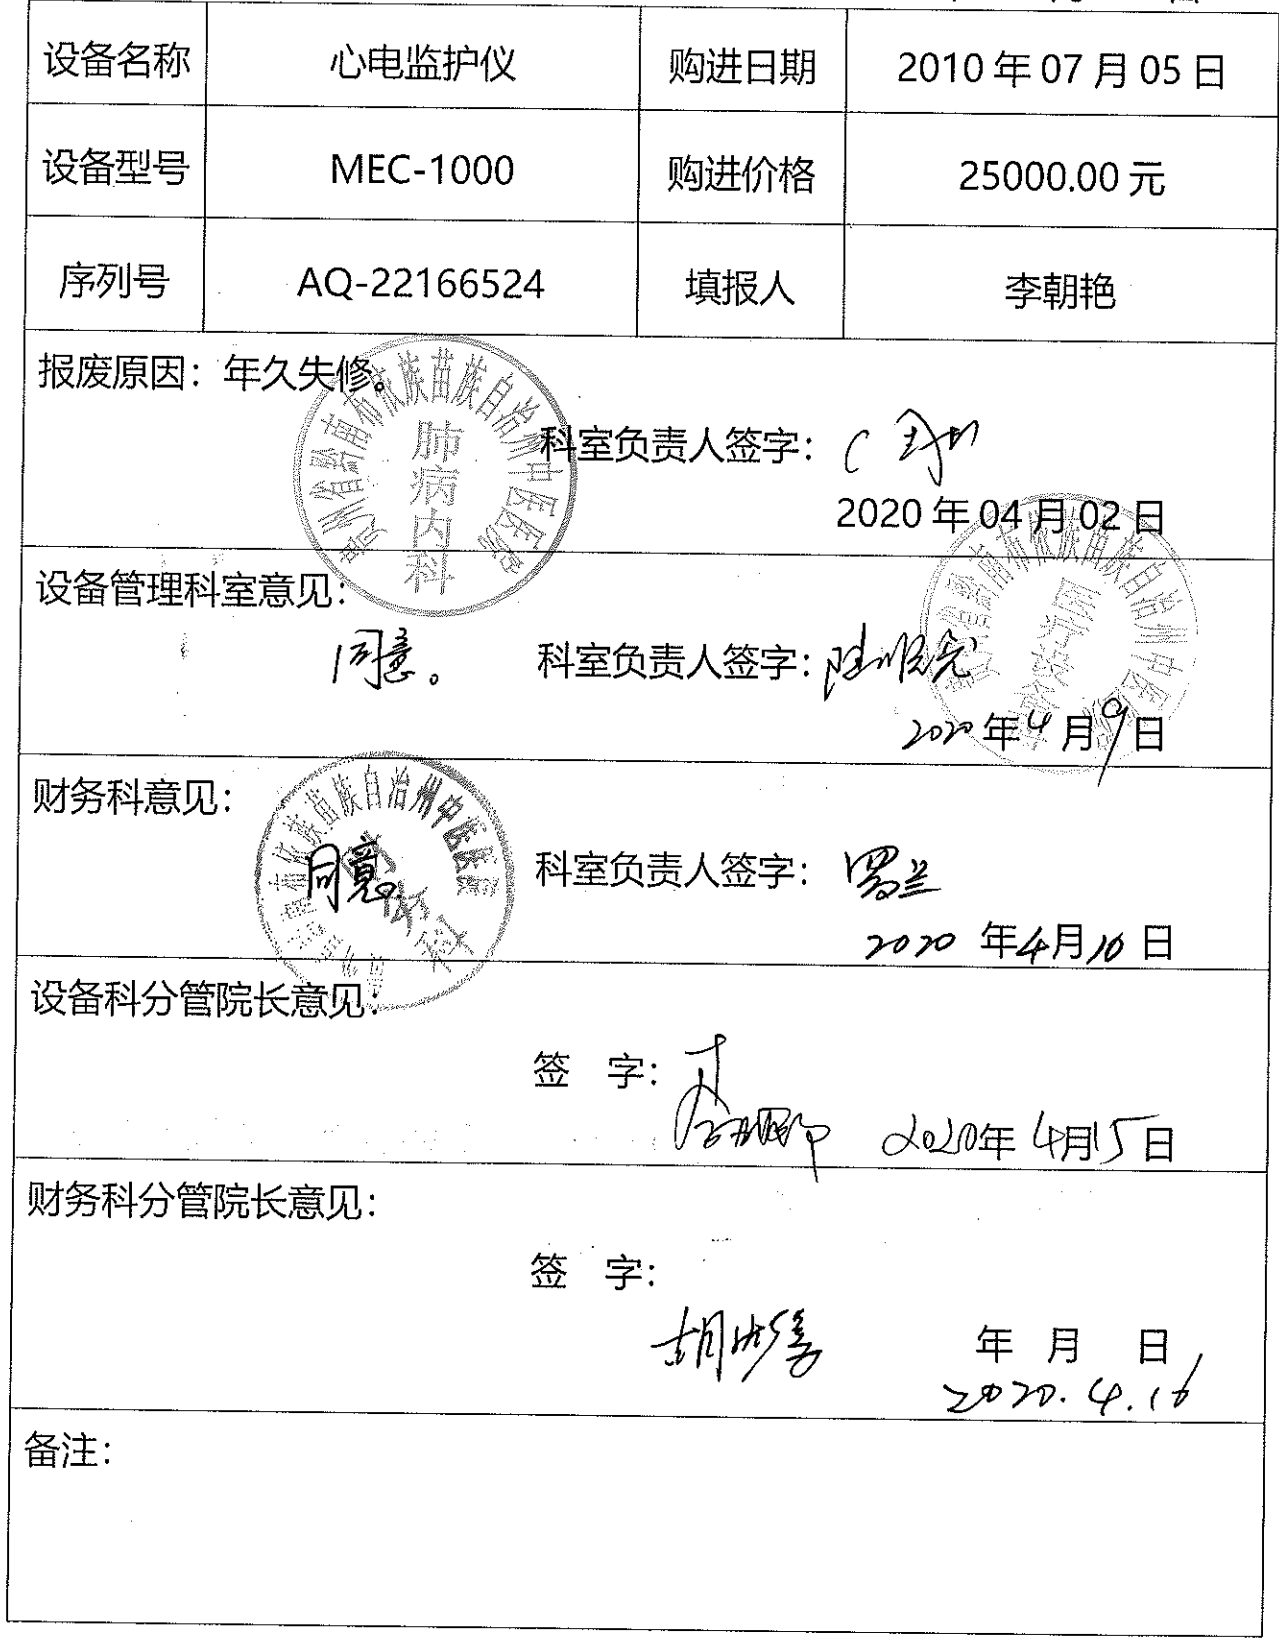 设备名称 心电监护仪 购进日期 2010年07月05日
设备型号 MEC-1000 购进价格 25000.00元
序列号 AQ-22166524 填报人 李朝艳
报废原因：年久失修。
贵州省黔南布依族苗族自治州中医医院
肺病内科
科室负责人签字：
2020年04月02日
设备管理科室意见：
同意。 科室负责人签字：陆顺尧
2020年4月9日
财务科意见：
同意。 科室负责人签字：罗兰
财务科
2020年4月10日
设备科分管院长意见：
签 字：
2020年4月15日
财务科分管院长意见：
签 字：
年 月 日
2020.4.16
备注：